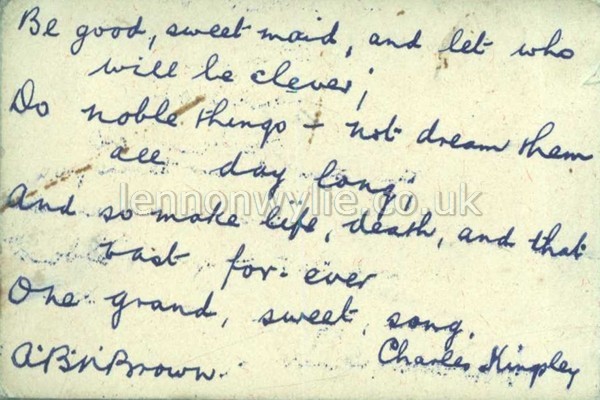 Be good, sweet maid, and let who
will be clever;
Do noble things – not dream them
all day long;
lennonwylie.co.uk
And so make life, death, and that
vast for-ever
One grand, sweet, song.
Charles Kingsley
A.B.N.Brown.